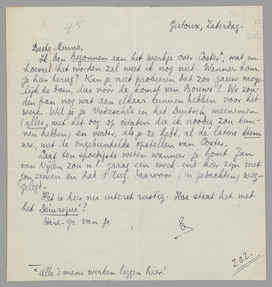 Gistoux, Zaterdag.
Beste Menno,
Ik ben begonnen aan het werkje over Coster*, wat en
hoeveel het worden zal weet ik nog niet. Wanneer kom
je hier terug? Kan je niet probeeren dat zoo gauw moge-
lijk te doen, dus vóór de komst van Bouws? We zou-
den dan nog wat aan elkaar kunnen hebben voor het
werk. Wil je je Nietzsche's in het duitsch meenemen
(alles, met het oog op citaten die ik noodig zou kun-
nen hebben) en verder, als je ze hebt, al de latere
, met de ongebundelde opstellen van Coster.
Laat ten spoedigste weten wanneer je komt. Jan
van Nijlen zou n.l. graag een week-end hier zijn met
jou samen en had Aug. daarvoor (in gedachten) weg-
gelegd.
Het is hier nu uiterst rustig. Hoe staat het met
het Démasqué?
Hart. gr. van je
E
* alle 's mans werken liggen hier!
202.